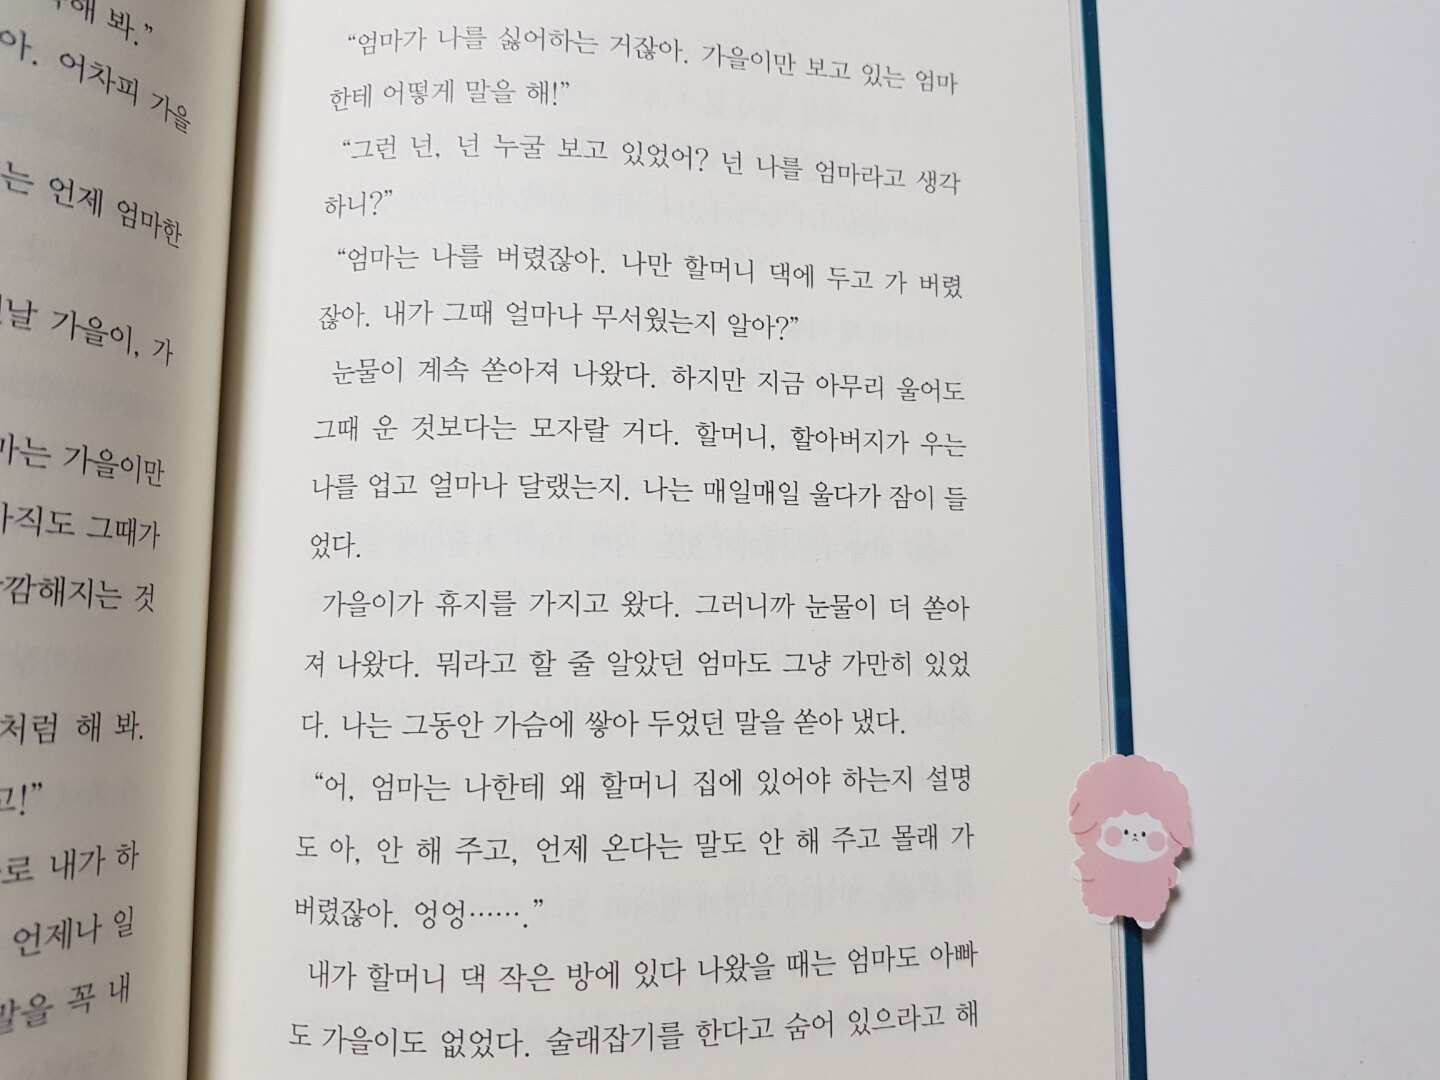 해 봐.”
아. 어차피 가을
는 언제 엄마한
날 가을이, 가
마는 가을이만
아직도 그때가
깜해지는 것
처럼 해 봐.
고!”
로 내가 하
언제나 일
말을 꼭 내
“엄마가 나를 싫어하는 거잖아. 가을이만 보고 있는 엄마
한테 어떻게 말을 해!”
“그런 넌, 넌 누굴 보고 있었어? 넌 나를 엄마라고 생각
하니?”
“엄마는 나를 버렸잖아. 나만 할머니 댁에 두고 가 버렸
잖아. 내가 그때 얼마나 무서웠는지 알아?”
눈물이 계속 쏟아져 나왔다. 하지만 지금 아무리 울어도
그때 운 것보다는 모자랄 거다. 할머니, 할아버지가 우는
나를 업고 얼마나 달랬는지. 나는 매일매일 울다가 잠이 들
었다.
가을이가 휴지를 가지고 왔다. 그러니까 눈물이 더 쏟아
져 나왔다. 뭐라고 할 줄 알았던 엄마도 그냥 가만히 있었
다. 나는 그동안 가슴에 쌓아 두었던 말을 쏟아 냈다.
“어, 엄마는 나한테 왜 할머니 집에 있어야 하는지 설명
도 아, 안 해 주고, 언제 온다는 말도 안 해 주고 몰래 가
버렸잖아. 엉엉…….”
내가 할머니 댁 작은 방에 있다 나왔을 때는 엄마도 아빠
도 가을이도 없었다. 술래잡기를 한다고 숨어 있으라고 해